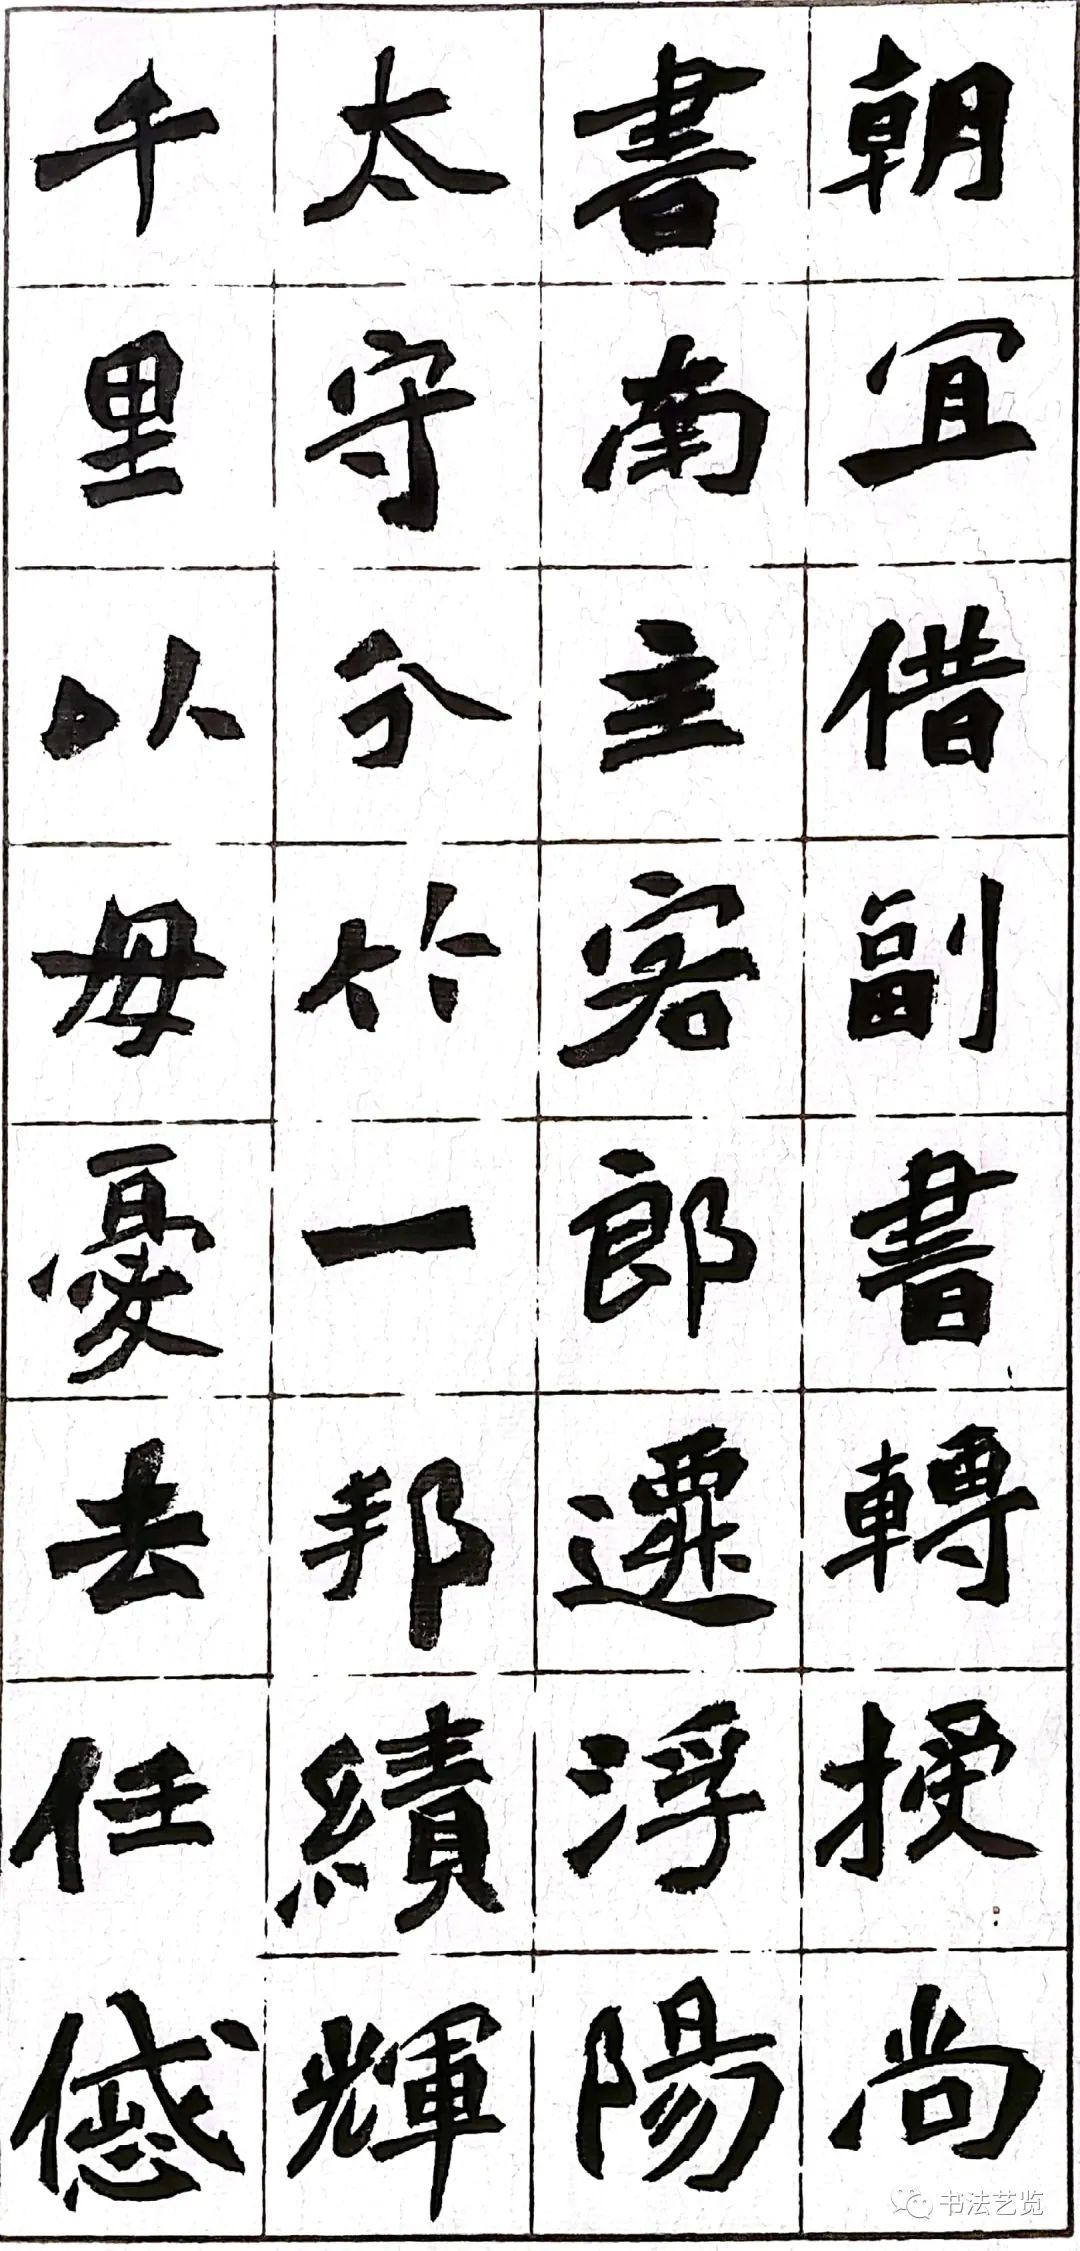 朝宜借副書轉授尚
書南主客郎遷浮陽
太守分竹一邦績輝
千里以母憂去任感
书法艺览